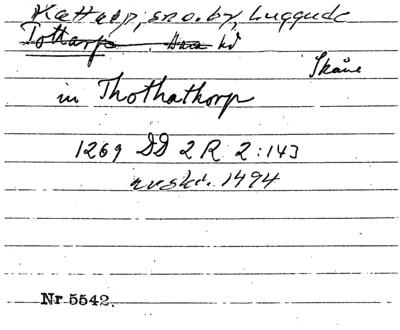 Kattarp, sno. by, Luggude
Totharp hd
Skåne
in Thothathorp
1269 DD 2 R 2:143
avskr. 1494
Nr 5542.